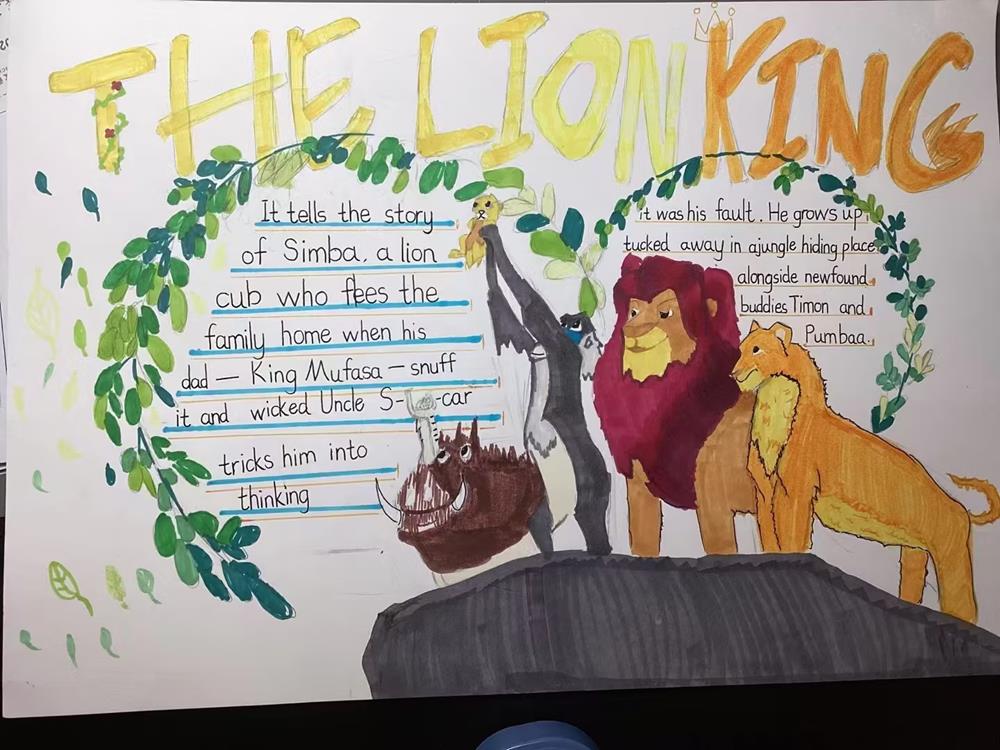 THE LION KING
It tells the story
of Simba, a lion
cub who flees the
family home when his
dad — King Mufasa — snuff
it and wicked Uncle S- -car
tricks him into
thinking
it was his fault. He grows up
tucked away in a jungle hiding place
alongside newfound
buddies Timon and
Pumbaa.